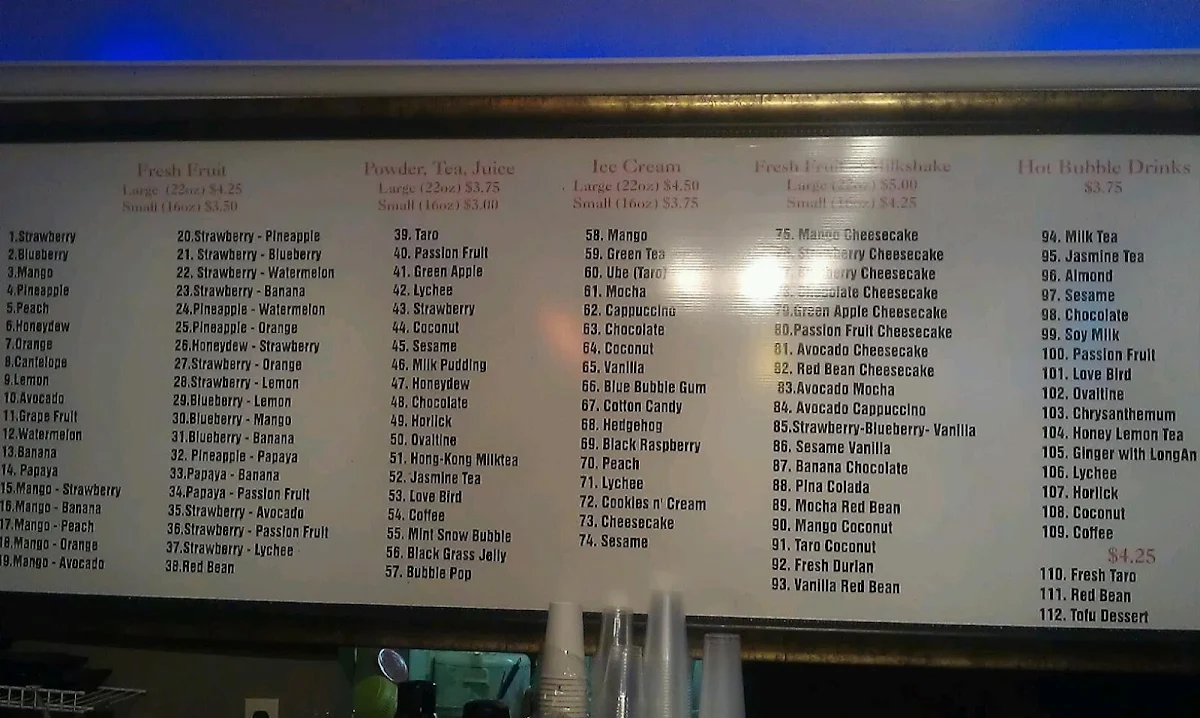 Fresh Fruit
Large (22oz) $4.25
Small (16oz) $3.50
1.Strawberry
2.Blueberry
3.Mango
4.Pineapple
5.Peach
6.Honeydew
7.Orange
8.Cantelope
9.Lemon
10.Avocado
11.Grape Fruit
12.Watermelon
13.Banana
14. Papaya
15.Mango - Strawberry
16.Mango - Banana
17.Mango - Peach
18.Mango - Orange
19.Mango - Avocado
20.Strawberry - Pineapple
21. Strawberry - Blueberry
22. Strawberry - Watermelon
23.Strawberry - Banana
24.Pineapple - Watermelon
25.Pineapple - Orange
26.Honeydew - Strawberry
27.Strawberry - Orange
28.Strawberry - Lemon
29.Blueberry - Lemon
30.Blueberry - Mango
31.Blueberry - Banana
32. Pineapple - Papaya
33.Papaya - Banana
34.Papaya - Passion Fruit
35.Strawberry - Avocado
36.Strawberry - Passion Fruit
37.Strawberry - Lychee
38.Red Bean
Powder, Tea, Juice
Large (22oz) $3.75
Small (16oz) $3.00
39. Taro
40. Passion Fruit
41. Green Apple
42. Lychee
43. Strawberry
44. Coconut
45. Sesame
46. Milk Pudding
47. Honeydew
48. Chocolate
49. Horlick
50. Ovaltine
51. Hong-Kong Milktea
52. Jasmine Tea
53. Love Bird
54. Coffee
55. Mint Snow Bubble
56. Black Grass Jelly
57. Bubble Pop
Ice Cream
Large (22oz) $4.50
Small (16oz) $3.75
58. Mango
59. Green Tea
60. Ube (Taro)
61. Mocha
62. Cappuccino
63. Chocolate
64. Coconut
65. Vanilla
66. Blue Bubble Gum
67. Cotton Candy
68. Hedgehog
69. Black Raspberry
70. Peach
71. Lychee
72. Cookies n' Cream
73. Cheesecake
74. Sesame
Fresh Fruit Milkshake
Large (22oz) $5.00
Small (16oz) $4.25
75. Mango Cheesecake
Strawberry Cheesecake
Cheesecake
Chocolate Cheesecake
79.Green Apple Cheesecake
80.Passion Fruit Cheesecake
81. Avocado Cheesecake
82. Red Bean Cheesecake
83.Avocado Mocha
84. Avocado Cappuccino
85.Strawberry-Blueberry- Vanilla
86. Sesame Vanilla
87. Banana Chocolate
88. Pina Colada
89. Mocha Red Bean
90. Mango Coconut
91. Taro Coconut
92. Fresh Durian
93. Vanilla Red Bean
Hot Bubble Drinks
$3.75
94. Milk Tea
95. Jasmine Tea
96. Almond
97. Sesame
98. Chocolate
99. Soy Milk
100. Passion Fruit
101. Love Bird
102. Ovaltine
103. Chrysanthemum
104. Honey Lemon Tea
105. Ginger with LongAn
106. Lychee
107. Horlick
108. Coconut
109. Coffee
$4.25
110. Fresh Taro
111. Red Bean
112. Tofu Dessert